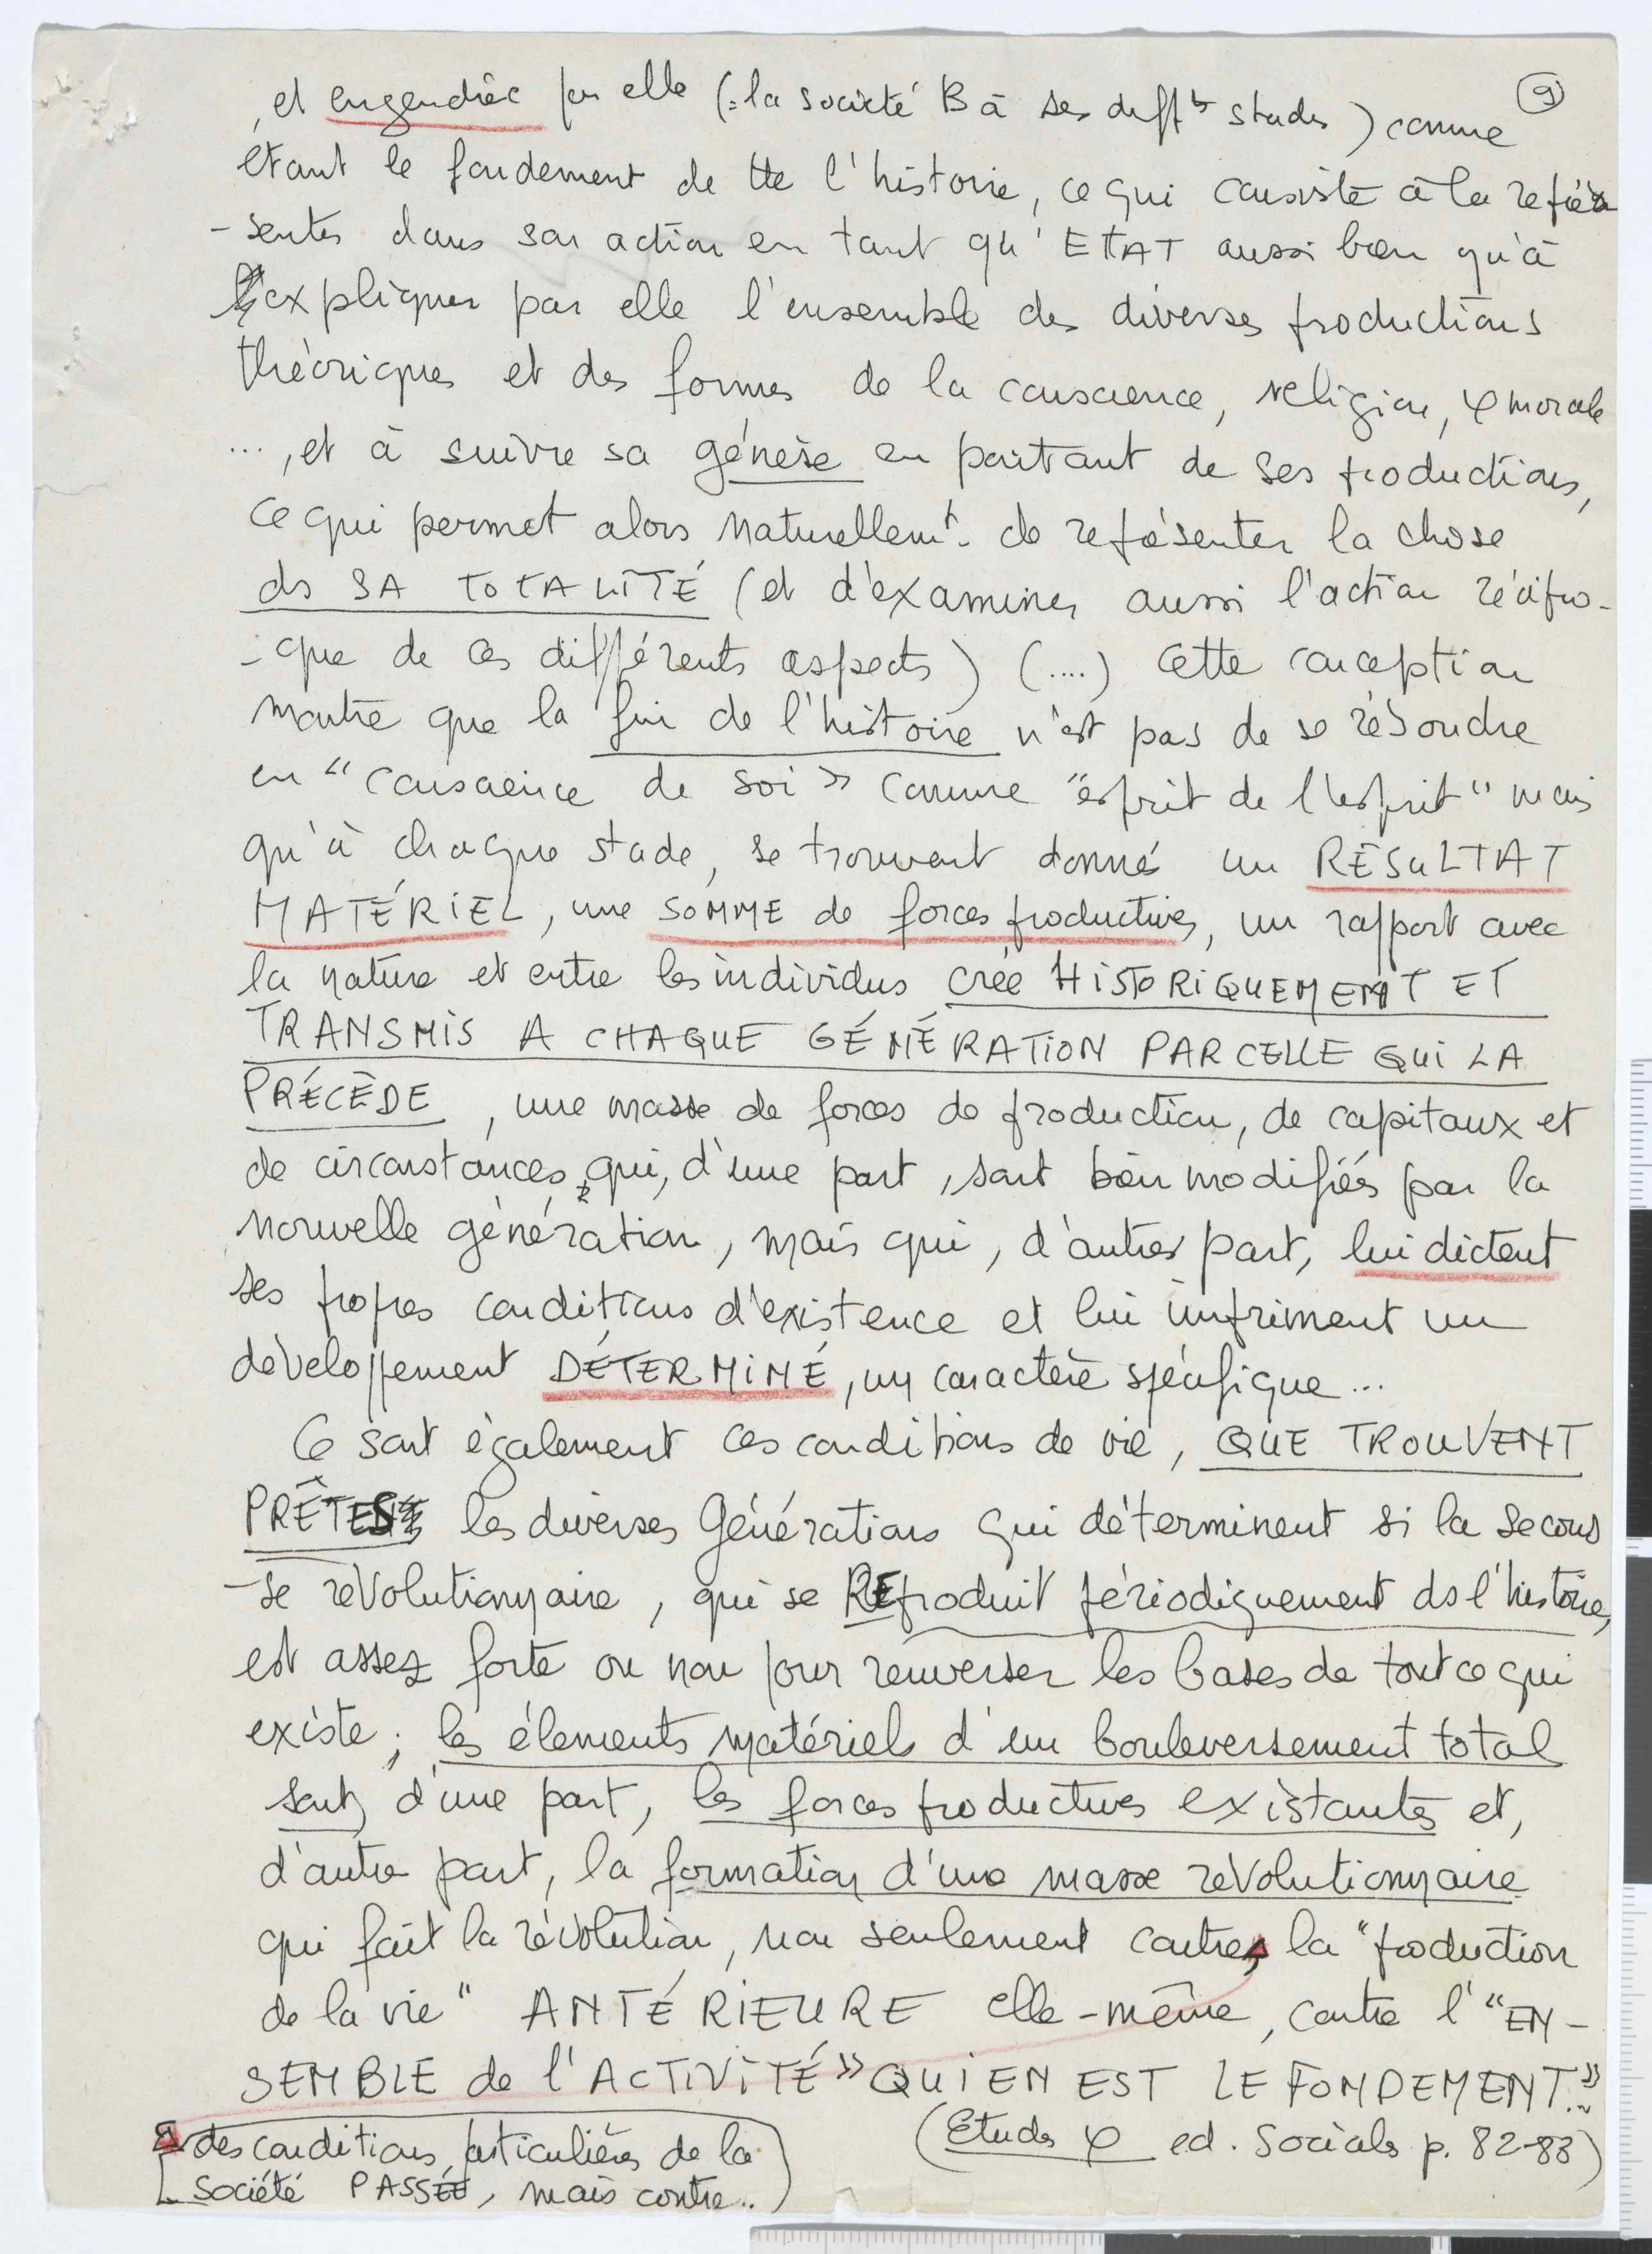 9
et engendrée par elle (= la société B à ses difft​s stades) comme
étant le fondement de tte l'histoire, ce qui consiste à la repré
-senter dans son action en tant qu'ETAT aussi bien qu'à
expliquer par elle l'ensemble des diverses productions
théoriques et des formes de la conscience, religion, φ morale
..., et à suivre sa génèse en partant de ses productions,
ce qui permet alors naturellemt. de représenter la chose
ds SA TOTALITÉ (et d'examiner aussi l'action récipro-
-que de ces différents aspects) (....) Cette conception
montre que la fin de l'histoire n'est pas de se résoudre
en "conscience de soi" comme "esprit de l'esprit" mais
qu'à chaque stade, se trouvent donné un RÉSULTAT
MATÉRIEL, une SOMME de forces productives, un rapport avec
la nature et entre les individus créé HISTORIQUEMENT ET
TRANSMIS A CHAQUE GÉNÉRATION PAR CELLE QUI LA
PRÉCÈDE, une masse de forces de production, de capitaux et
de circonstances, qui, d'une part, sont bien modifiés par la
nouvelle génération, mais qui, d'autres part, lui dictent
ses propres conditions d'existence et lui impriment un
développement DÉTERMINÉ, un caractère spécifique...
Ce sont également ces conditions de vie, QUE TROUVENT
PRÊTES les diverses Générations qui déterminent si la secous
-se révolutionnaire, qui se REproduit périodiquement ds l'histoire,
est assez forte ou non pour renverser les bases de tout ce qui
existe ; les éléments matériels d'un bouleversement total
sont, d'une part, les forces productives existantes et,
d'autre part, la formation d'une masse révolutionnaire
qui fait la révolution, non seulement contre la "production
de la vie" ANTÉRIEURE elle-même, contre l'"EN-
SEMBLE de l'ACTIVITÉ" QUI EN EST LE FONDEMENT."
(Etudes φ ed. Sociales p. 82-83)
des conditions particulières de la
Société PASSÉE, mais contre..